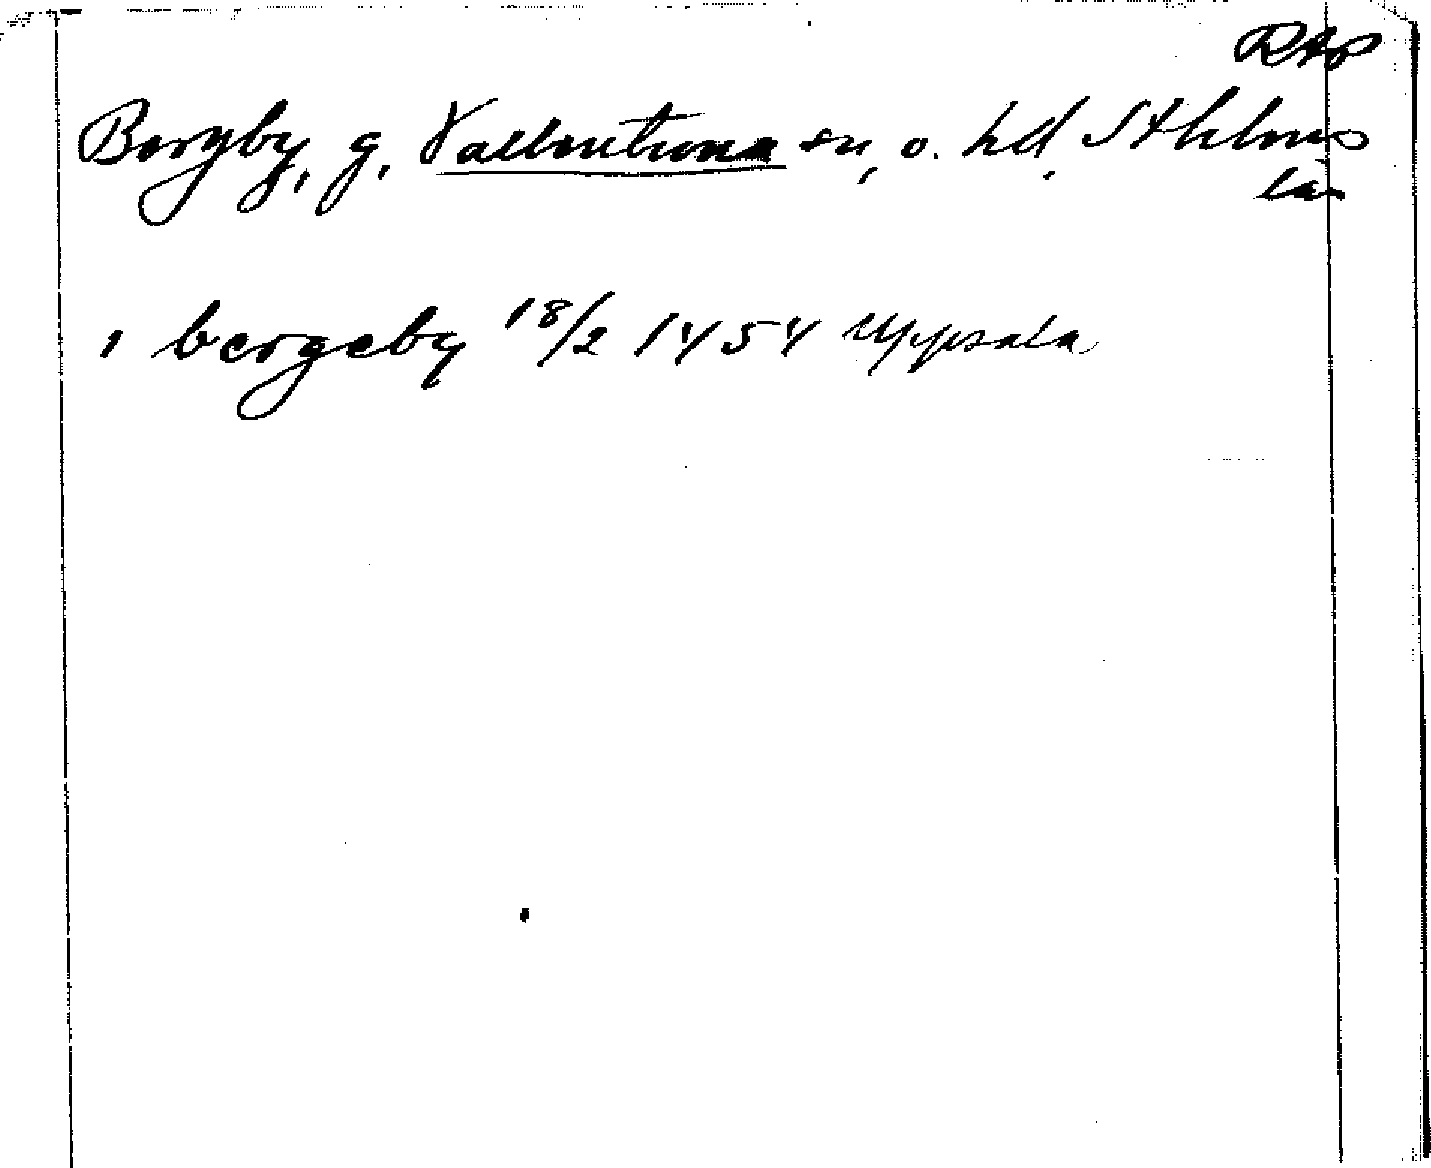 RAp
Bergby, g, Vallentuna sn, o. hd. Sthlms
län
i bergeby 18/2 1454 Uppsala